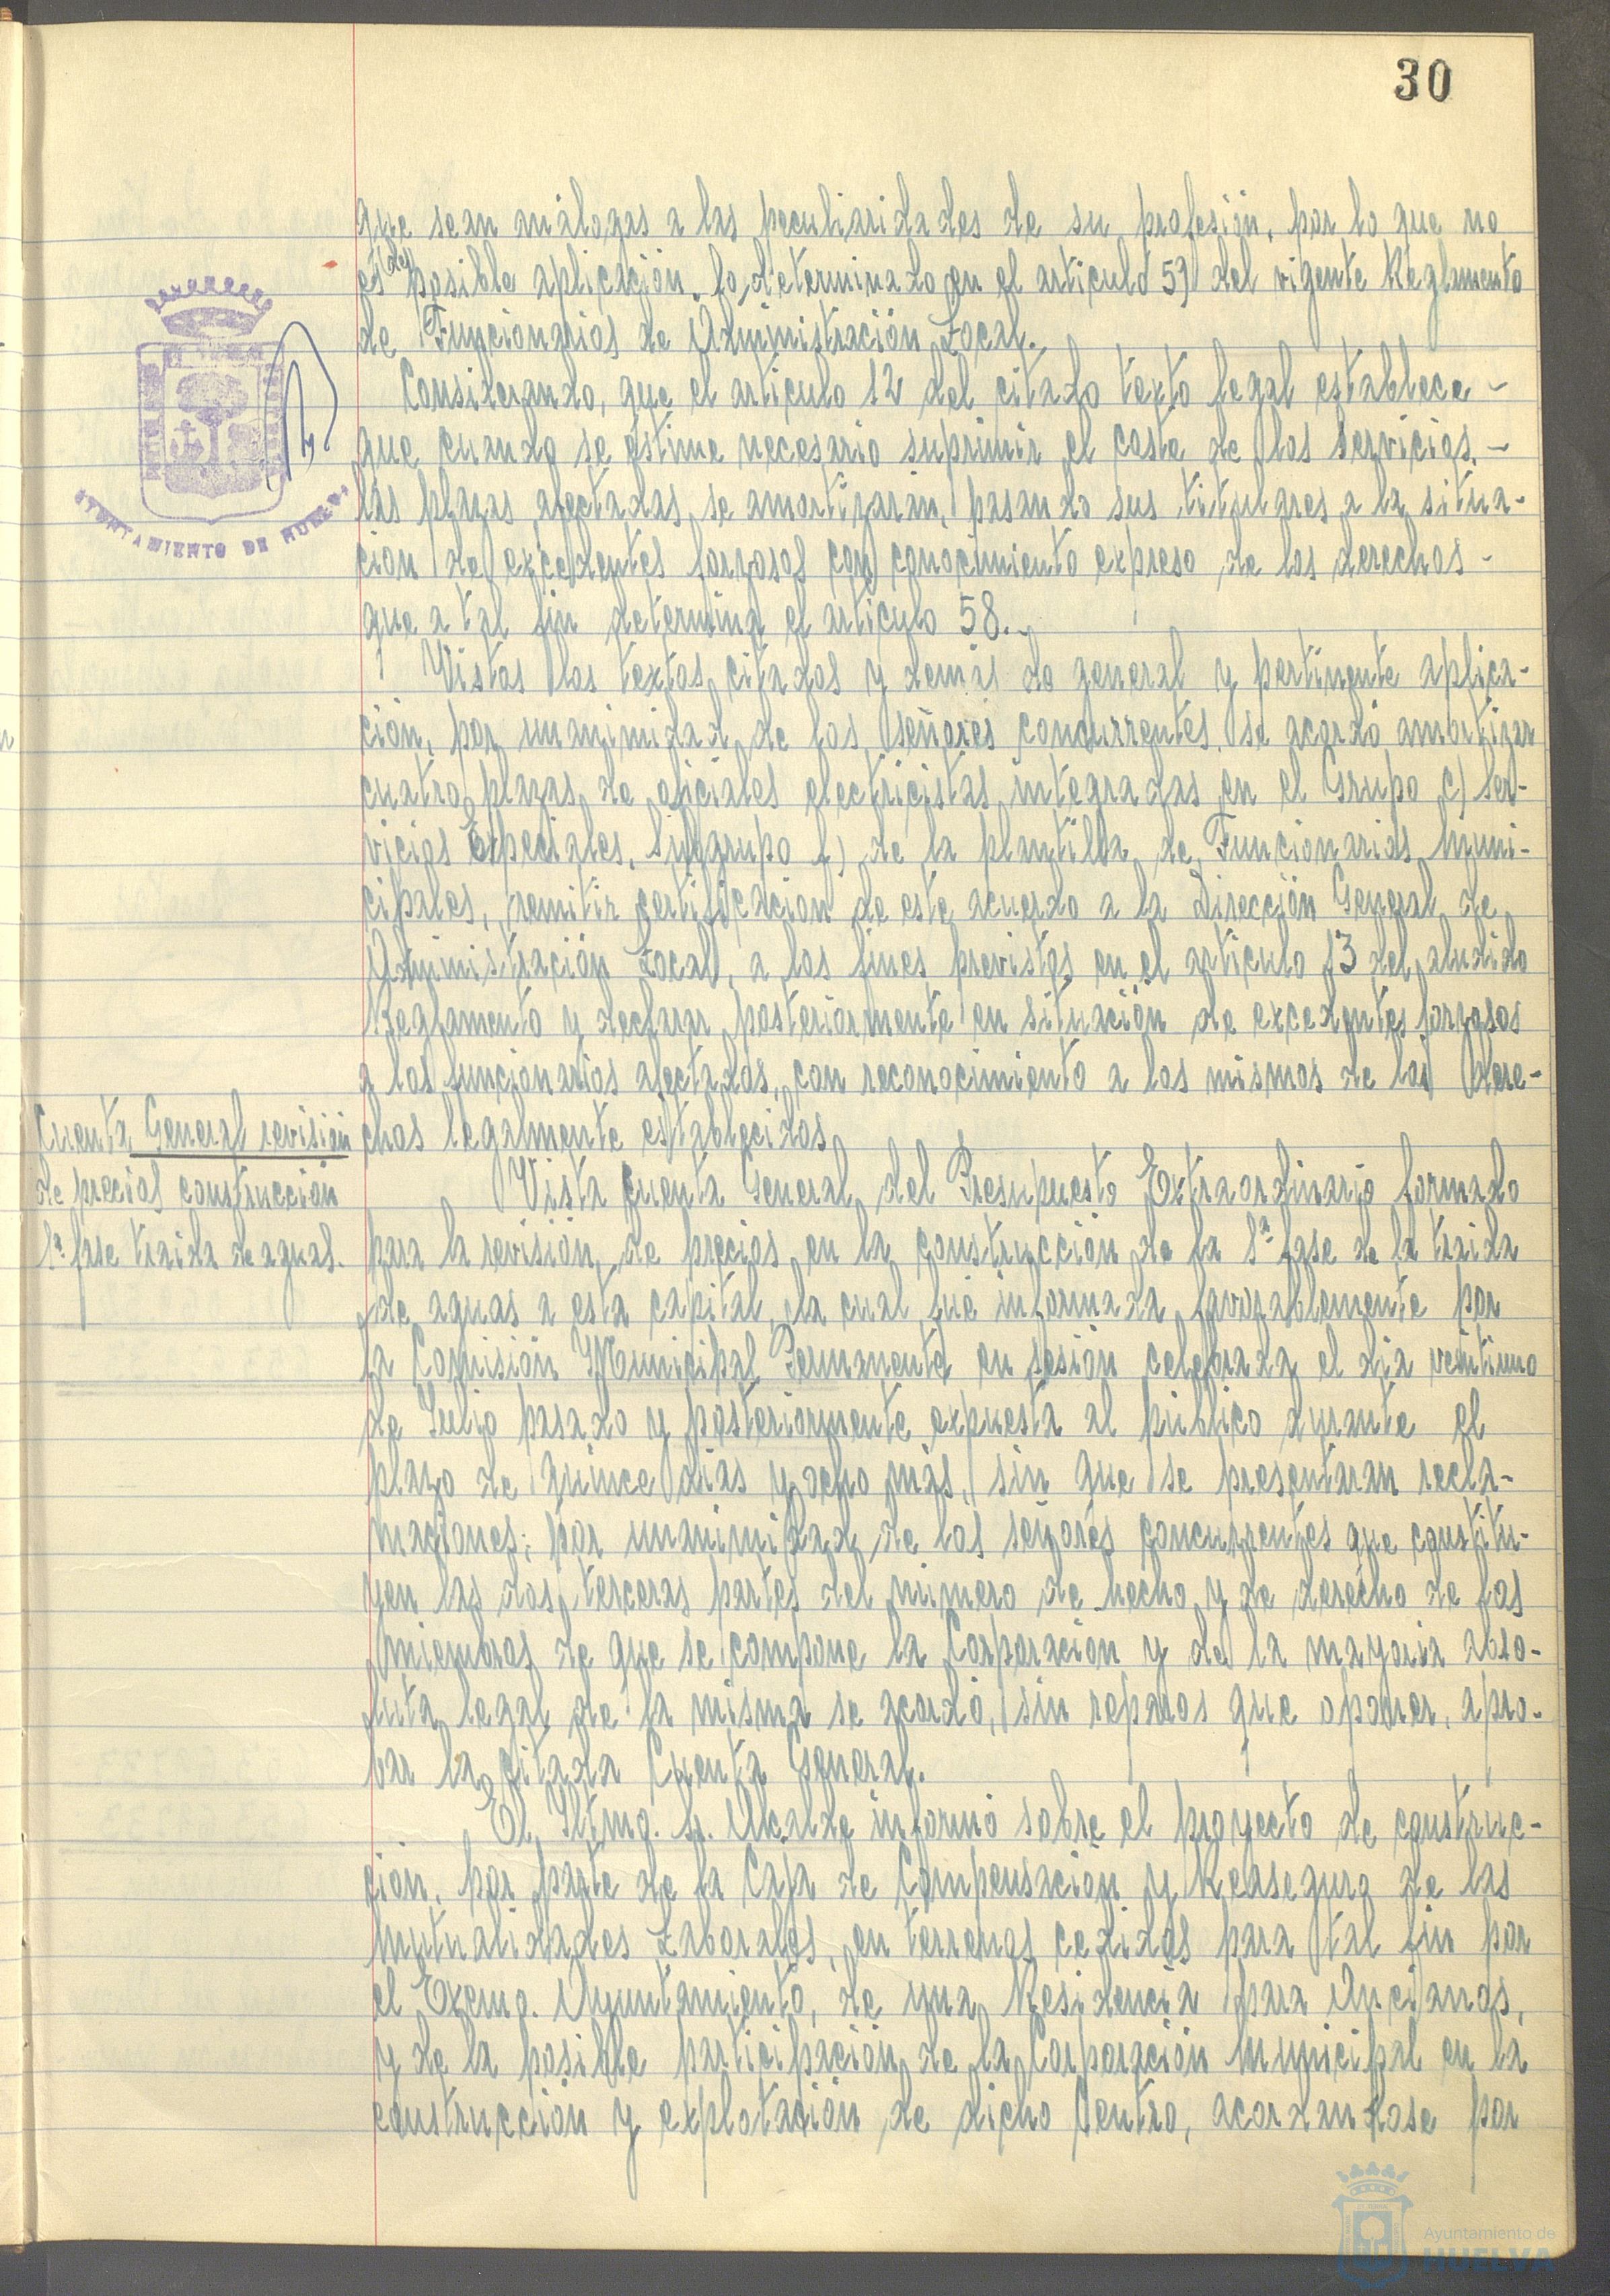 30
que sean análogas a las peculiaridades de su profesión, por lo que no
es de posible aplicación lo determinado en el artículo 59 del vigente Reglamento
de Funcionarios de Administración Local.
Considerando, que el artículo 12 del citado texto legal establece -
que cuando se estime necesario suprimir el coste de los servicios, -
las plazas afectadas se amortizarán, pasando sus titulares a la situa-
ción de excedentes forzosos con conocimiento expreso de los derechos -
que a tal fin determina el artículo 58.-
Vistos los textos citados y demás de general y pertinente aplica-
ción, por unanimidad de los señores concurrentes, se acordó amortizar
cuatro plazas de oficiales electricistas integradas en el Grupo c) Ser-
vicios Especiales, Subgrupo f) de la plantilla de Funcionarios Muni-
cipales, remitir certificación de este acuerdo a la Dirección General de
Administración Local, a los fines previstos en el artículo 13 del aludido
Reglamento y declarar posteriormente en situación de excedentes forzosos
a los funcionarios afectados, con reconocimiento a los mismos de los dere-
chos legalmente establecidos.
Cuenta General revisión
de precios construcción
1ª fase traida de aguas.
Vista cuenta General del Presupuesto Extraordinario formado
para la revisión de precios en la construcción de la 1ª fase de la traida
de aguas a esta capital, la cual fué informada favorablemente por
la Comisión Municipal Permanente en sesión celebrada el día veintiuno
de Julio pasado y posteriormente expuesta al público durante el
plazo de quince días y ocho más, sin que se presentaran recla-
maciones; por unanimidad de los señores concurrentes que constitu-
yen las dos terceras partes del número de hecho y de derecho de los
miembros de que se compone la Corporación y de la mayoria abso-
luta legal de la misma se acordó, sin reparos que oponer, apro-
bar la citada Cuenta General.
El Iltmo. Sr. Alcalde informó sobre el proyecto de construc-
ción, por parte de la Caja de Compensación y Reaseguro de las
Mutualidades Laborales, en terrenos cedidos para tal fin por
el Excmo. Ayuntamiento, de una Residencia para Ancianos,
y de la posible participación de la Corporación Municipal en la
construcción y explotación de dicho Centro, acordandose por
AYUNTAMIENTO DE HUELVA
Ayuntamiento de
HUELVA